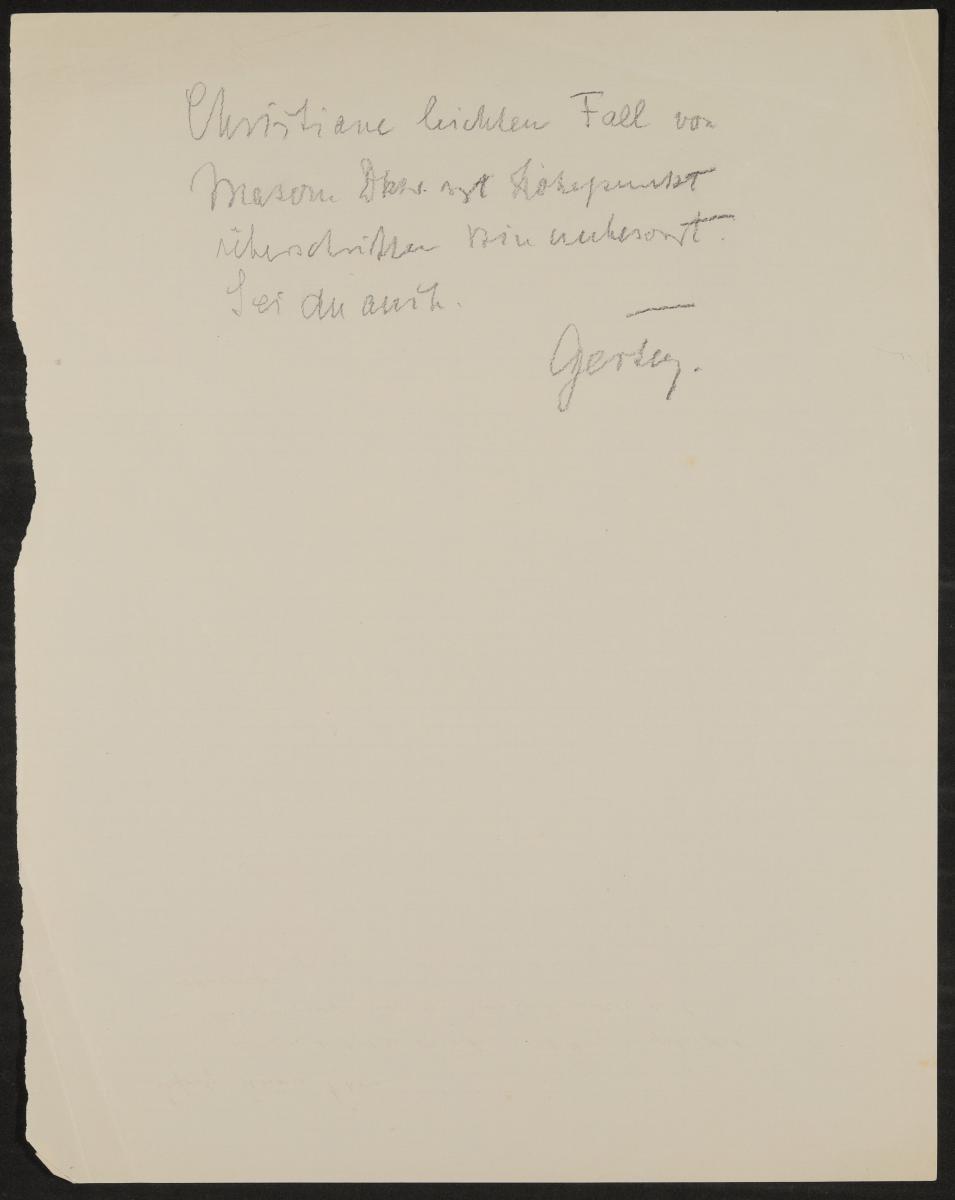 Christiane leichten Fall von
Masern Höhepunkt
überschritten bin unbesorgt.
Sei du auch.
Gerty.